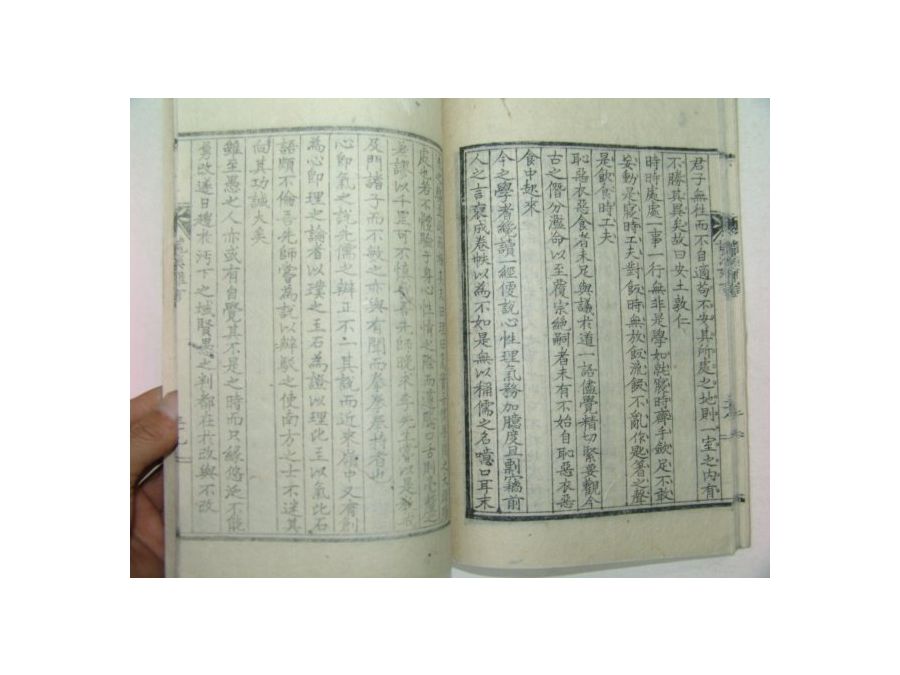 君子無往而不自適苟不安其所處之地則一室之內有
不勝其異矣故曰安土敦仁
時時處處一事一行無非是學如就寢時齊手歛足不敢
妄動是寢時工夫對飯時無放飯流飯不亂作匙箸之聲
是飮食時工夫
恥惡衣惡食者未足與議於道一語儘覺精切緊要觀今
古之僭分濫命以至覆宗絕嗣者未有不始自恥惡衣惡
食中起來
今之學者纔讀一經便說心性理氣務加臆度且剽竊前
人之言裒成卷帙以爲不如是無以稱儒之名噫口耳末
處也若不體驗于身心性情之際而遽騰口舌則毫釐之
差謬以千里可不愼哉
及門諸子而不敏之亦與有聞而拳拳服膺者也
心卽氣之說先儒之辨正不一其說而近來嶺中又有創
爲心卽理之論者以璞之玉石爲證以理比玉以氣比石
語頗不倫吾先師嘗爲說以辭闢之使南方之士不迷其
向其功誠大矣
雖至愚之人亦或有自覺其不是之時而只緣悠泛不能
改遂日趨於汚下之域賢愚之判都在於改與不改